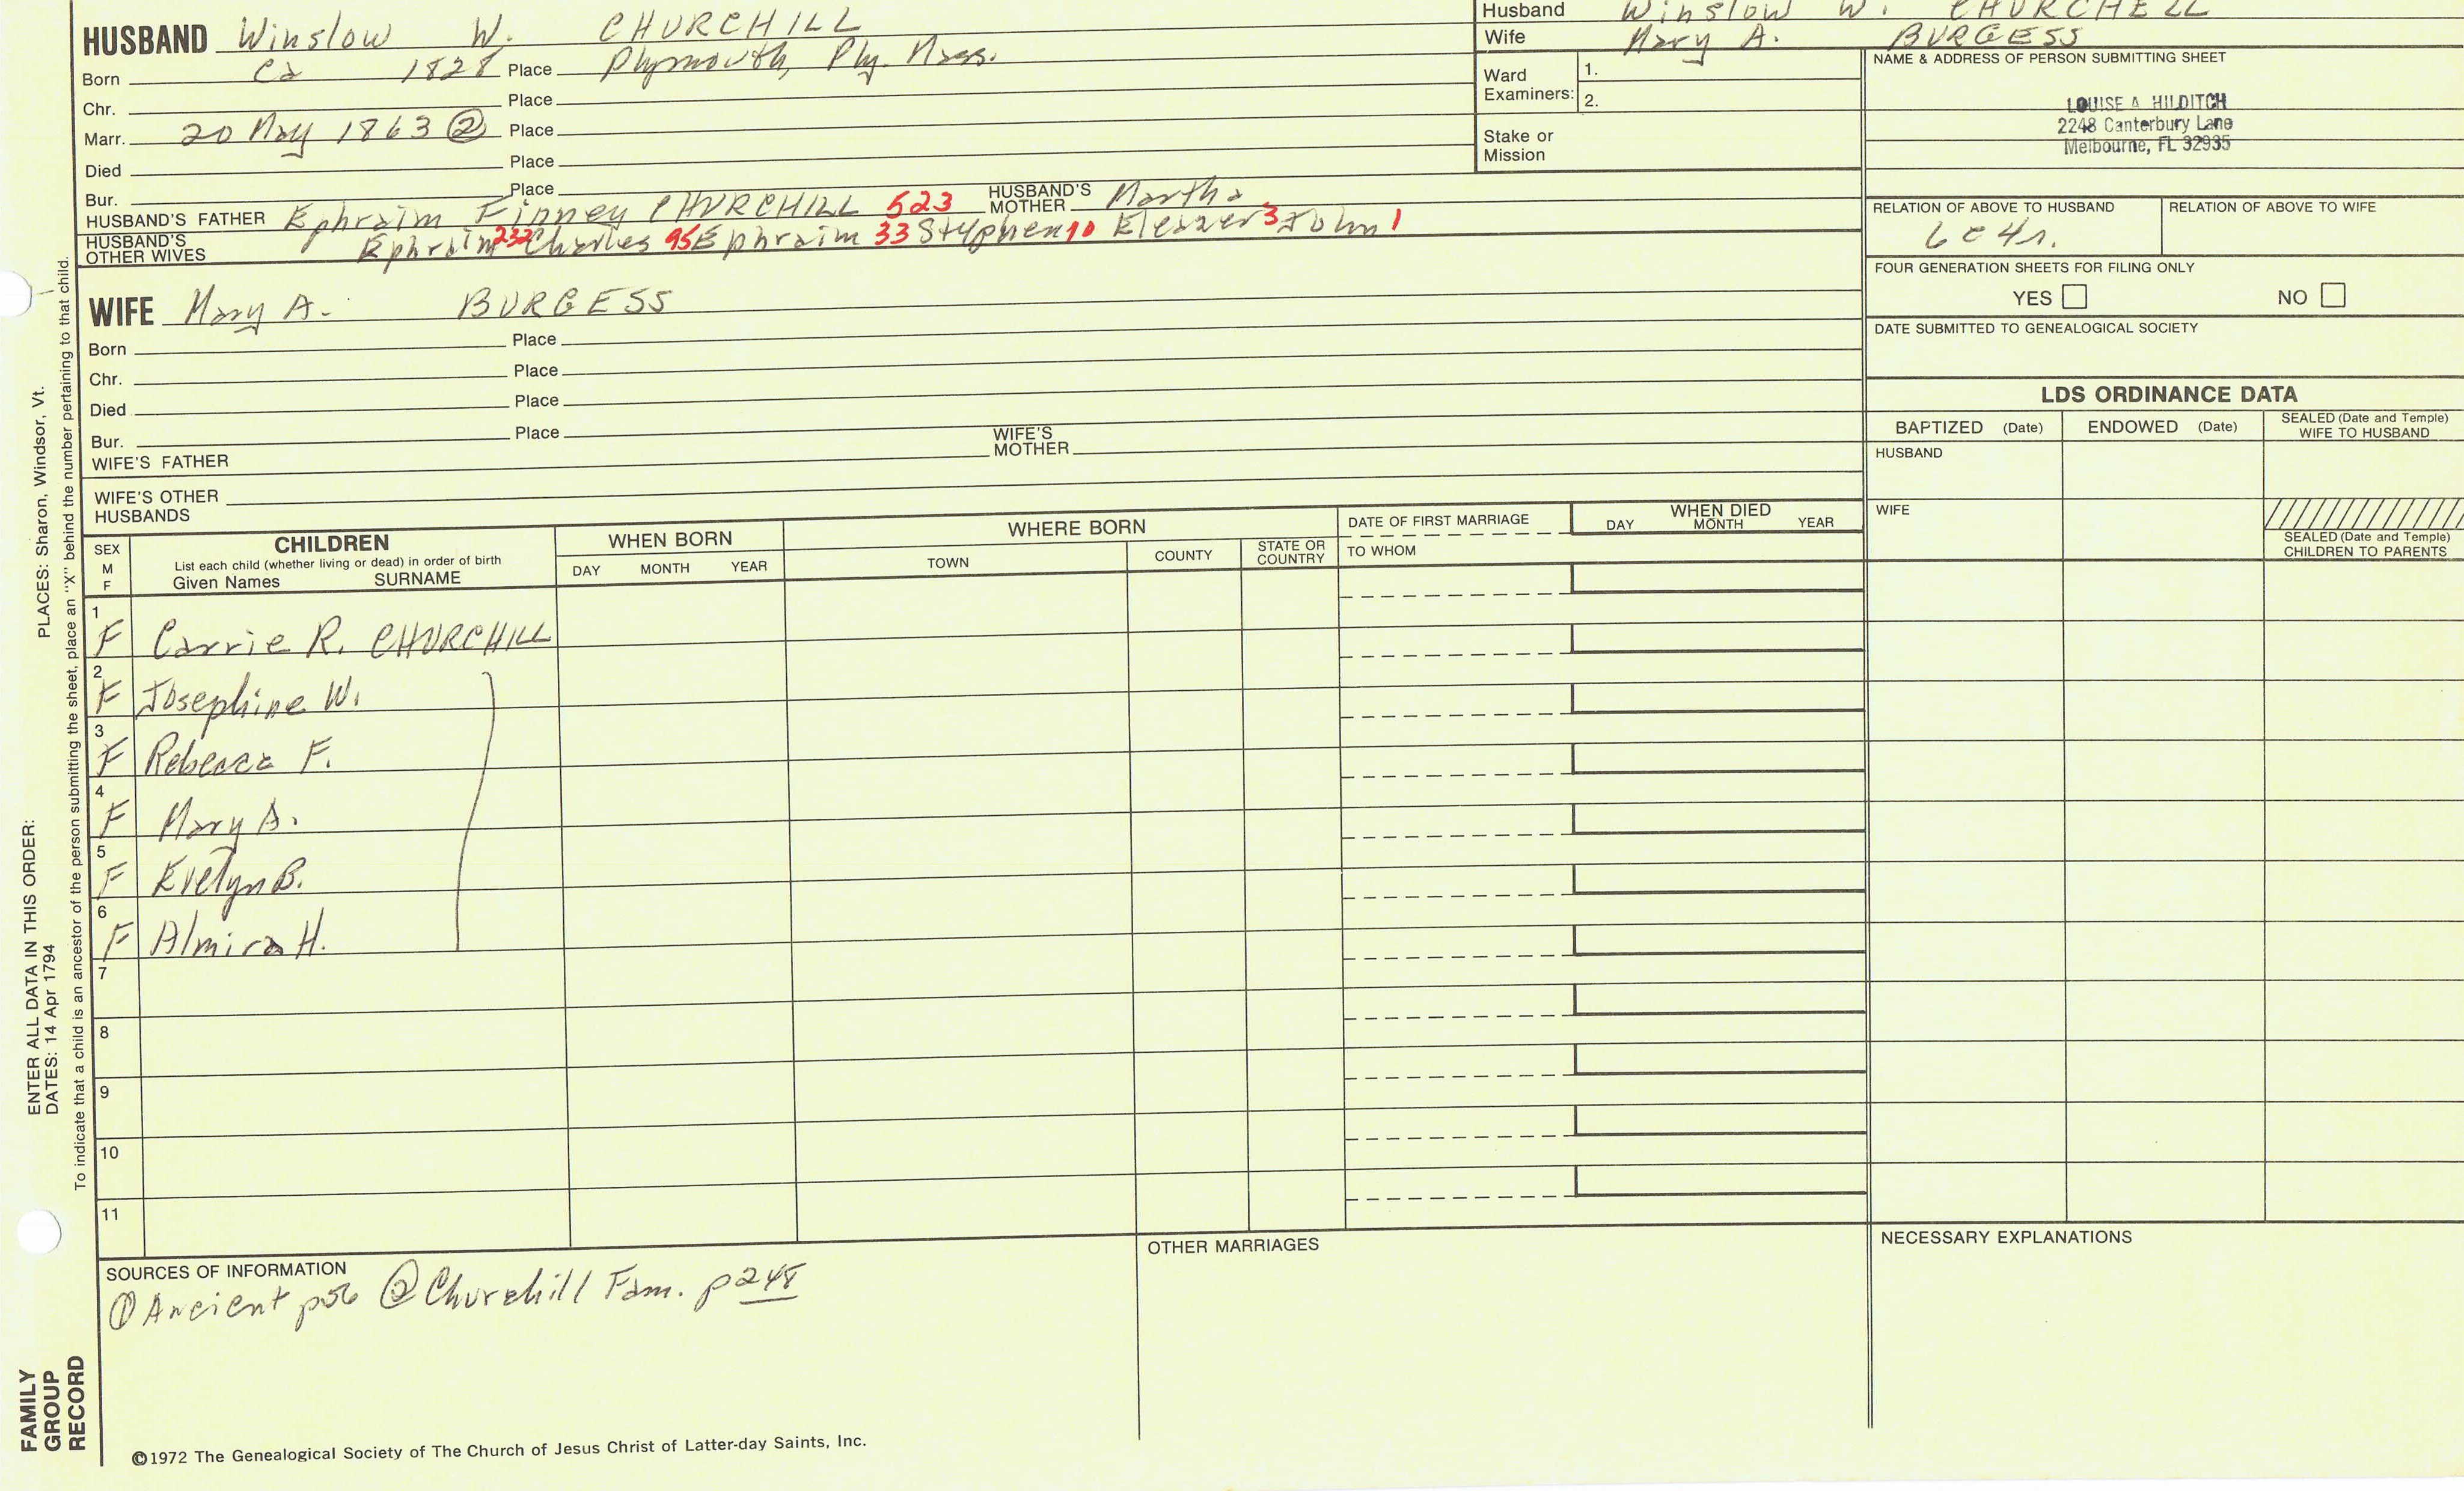 HUSBAND Winslow W. CHURCHILL
Born ca 1828 Place Plymouth, Ply. Mass.
Chr. Place
Marr. 20 May 1863 ② Place
Died Place
Bur. Place
HUSBAND'S FATHER Ephraim Finney CHURCHILL 523 HUSBAND'S MOTHER Martha
HUSBAND'S OTHER WIVES Ephraim 232 Charles 95 Ephraim 33 Styphen 10 Eleazer 3 John 1
WIFE Mary A. BURGESS
Born Place
Chr. Place
Died Place
Bur. Place
WIFE'S FATHER WIFE'S MOTHER
WIFE'S OTHER HUSBANDS
Husband Winslow W. CHURCHELL
Wife Mary A. BURGESS
Ward Examiners: 1.
2.
Stake or Mission
NAME & ADDRESS OF PERSON SUBMITTING SHEET
LOUISE A HILDITCH
2248 Canterbury Lane
Melbourne, FL 32935
RELATION OF ABOVE TO HUSBAND RELATION OF ABOVE TO WIFE
6c4r.
FOUR GENERATION SHEETS FOR FILING ONLY
YES NO
DATE SUBMITTED TO GENEALOGICAL SOCIETY
LDS ORDINANCE DATA
BAPTIZED (Date) ENDOWED (Date) SEALED (Date and Temple) WIFE TO HUSBAND
HUSBAND
WIFE
SEALED (Date and Temple) CHILDREN TO PARENTS
SEX M F
CHILDREN
List each child (whether living or dead) in order of birth
Given Names SURNAME
WHEN BORN
DAY MONTH YEAR
WHERE BORN
TOWN COUNTY STATE OR COUNTRY
DATE OF FIRST MARRIAGE
TO WHOM
WHEN DIED
DAY MONTH YEAR
1 F Carrie R. CHURCHILL
2 F Josephine W.
3 F Rebecca F.
4 F Mary A.
5 F Evelyn B.
6 F Almira H.
7
8
9
10
11
SOURCES OF INFORMATION
① Ancient p56 ② Churchill Fam. p248
OTHER MARRIAGES
NECESSARY EXPLANATIONS
©1972 The Genealogical Society of The Church of Jesus Christ of Latter-day Saints, Inc.
FAMILY
GROUP
RECORD
ENTER ALL DATA IN THIS ORDER:
DATES: 14 Apr 1794
PLACES: Sharon, Windsor, Vt.
To indicate that a child is an ancestor of the person submitting the sheet, place an "X" behind the number pertaining to that child.